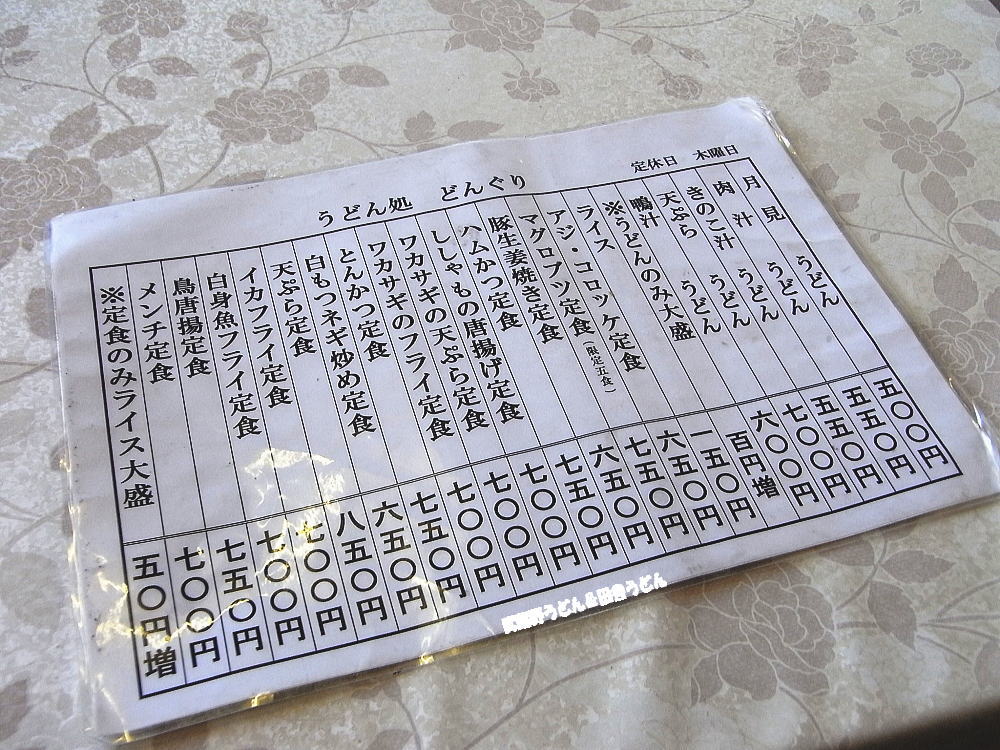 定休日　木曜日
うどん処　どんぐり
月見うどん　五〇〇円
肉汁うどん　五五〇円
きのこ汁うどん　五五〇円
天ぷらうどん　七〇〇円
鴨汁うどん　六〇〇円
※うどんのみ大盛　百円増
ライス　一五〇円
アジ・コロッケ定食　六五〇円
マグロブツ定食（限定五食）　七五〇円
豚生姜焼き定食　六五〇円
ハムかつ定食　七五〇円
ししゃもの唐揚げ定食　七〇〇円
ワカサギの天ぷら定食　七〇〇円
ワカサギのフライ定食　七〇〇円
とんかつ定食　七五〇円
白もつネギ炒め定食　六五〇円
天ぷら定食　八五〇円
イカフライ定食　七〇〇円
白身魚フライ定食　七〇〇円
鳥唐揚定食　七五〇円
メンチ定食　七〇〇円
※定食のみライス大盛　五〇円増
武蔵野うどん&田舎うどん